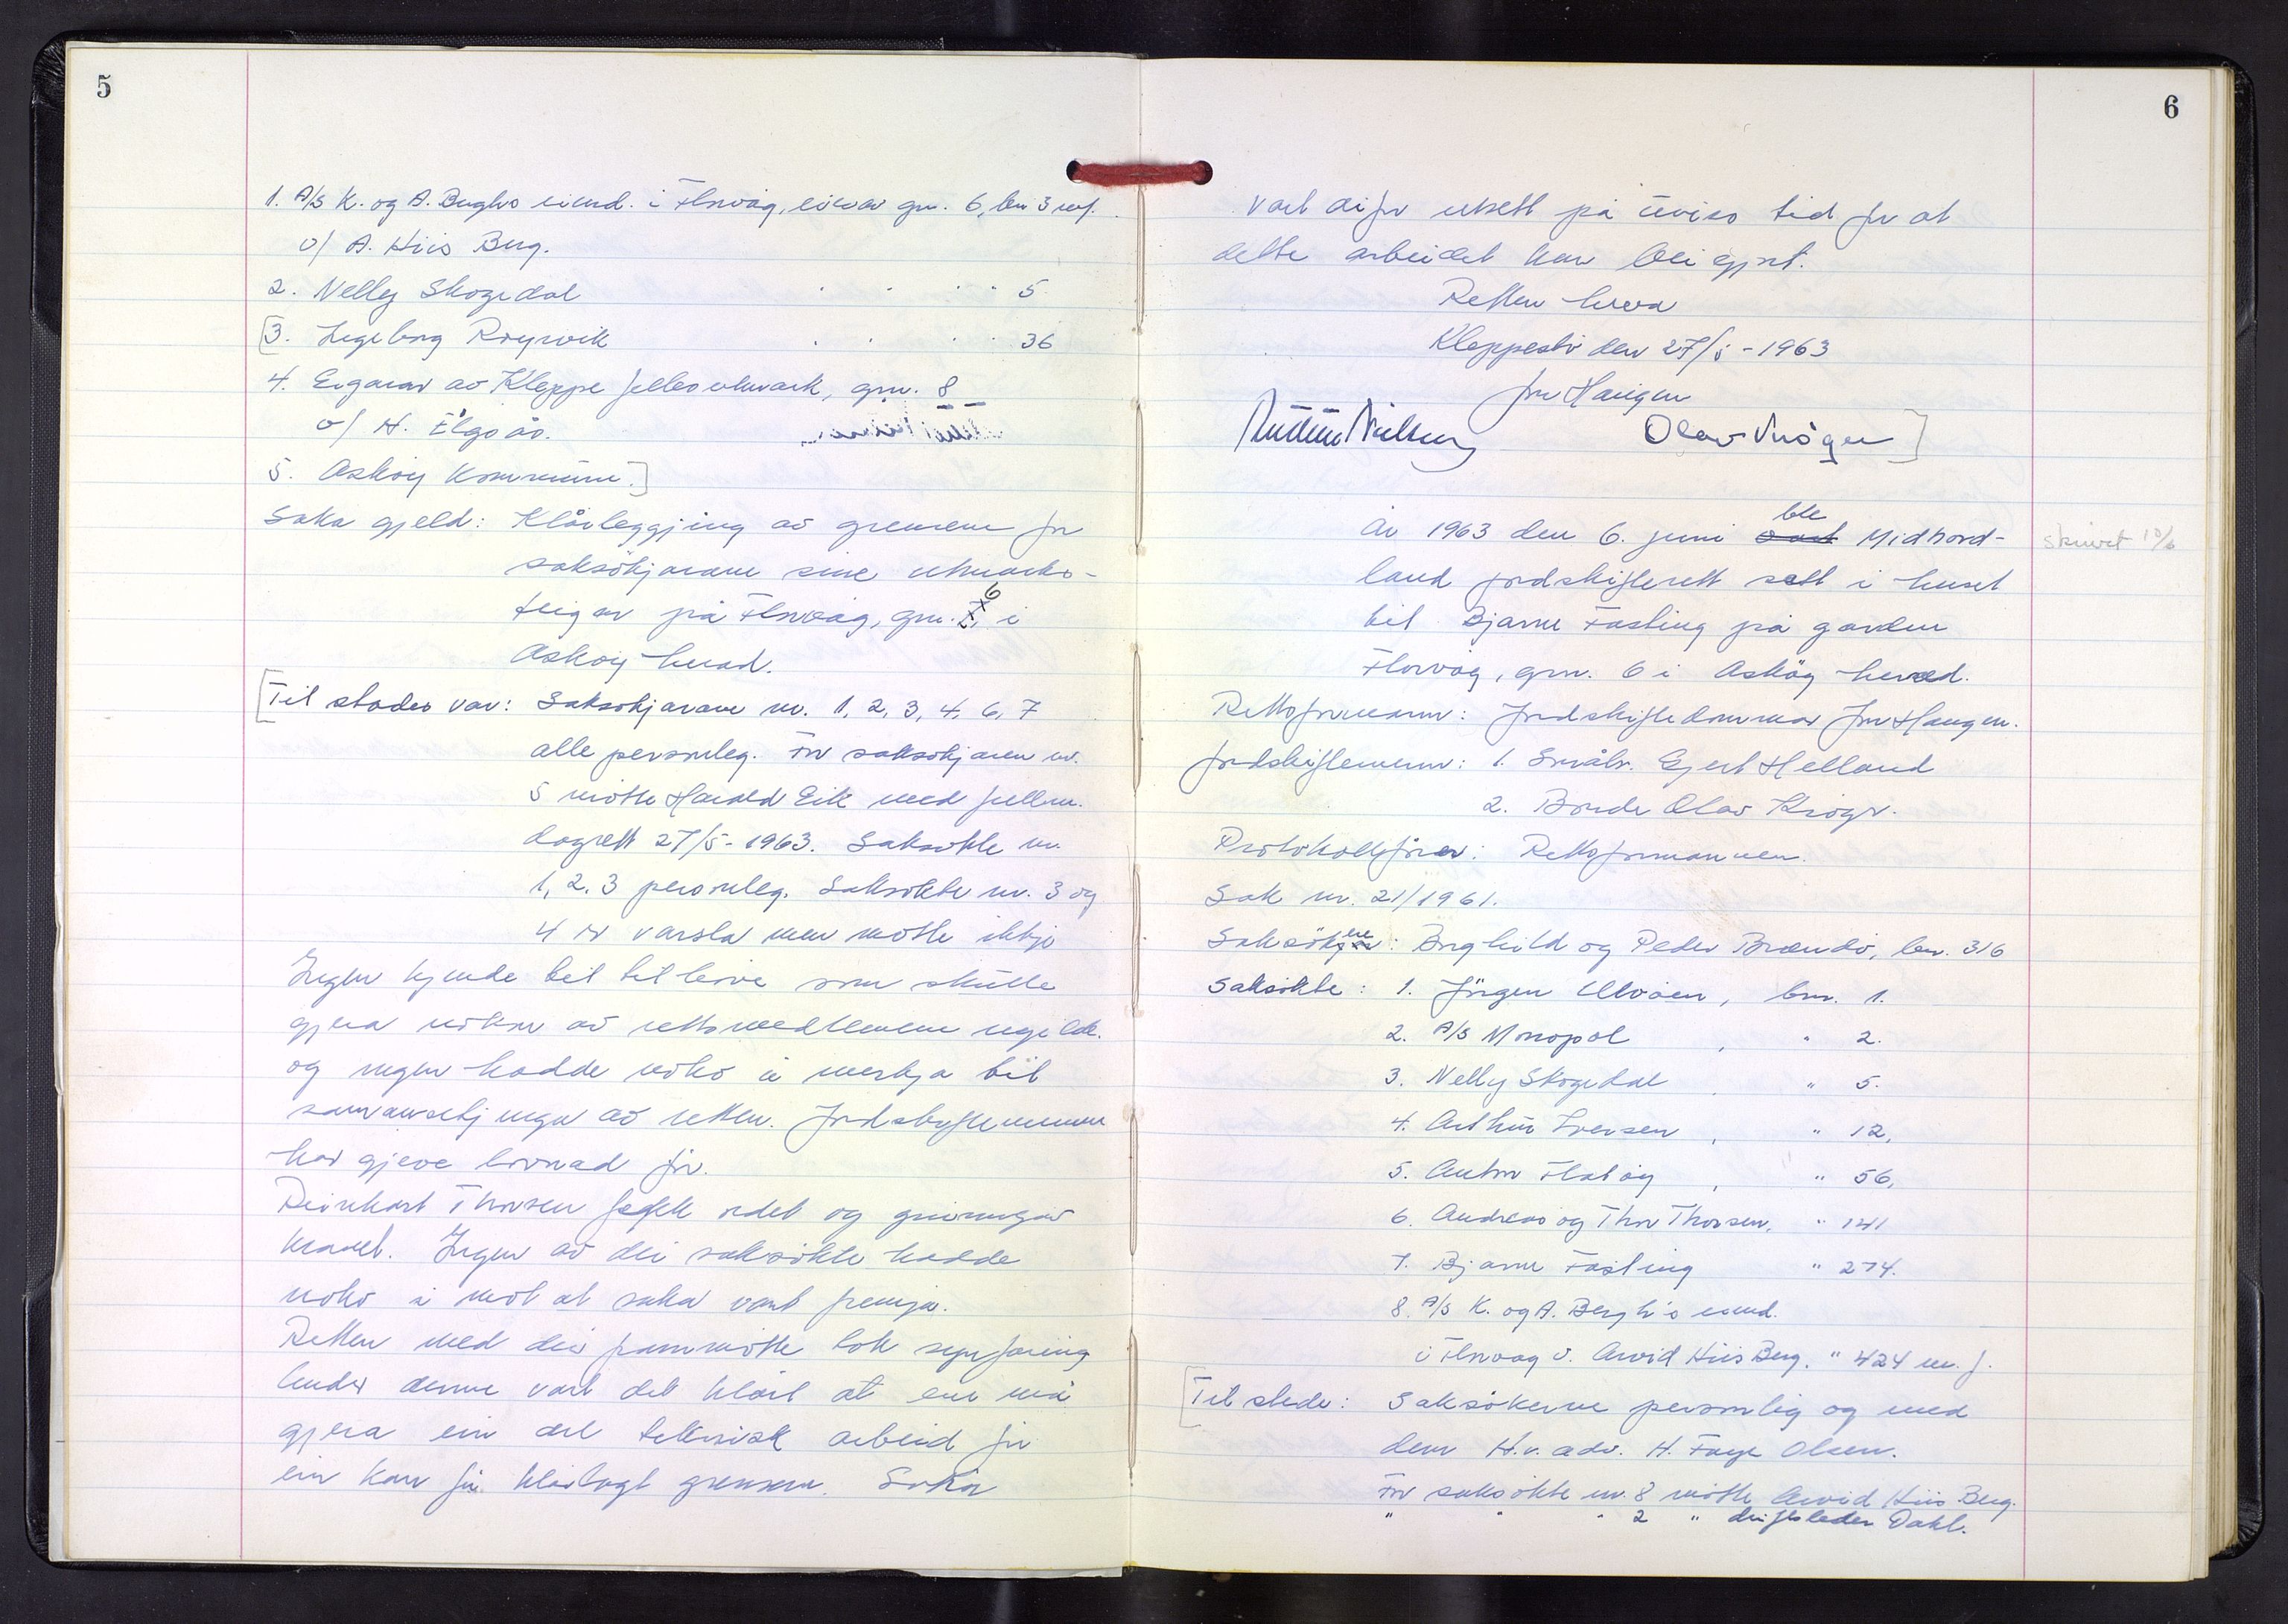 5
1. A/S K. og A. Berghs eiend. i Florvåg, eigar gnr. 6, bnr 3 m.f.
v/ A. Hiis Berg.
2. Nelly Skogedal " " " " 5
[3. Ingeborg Røyrvik " " " " 36
4. Eigarar av Kleppe fellesutmark, gnr. 8
v/ H. Elgsås.
5. Askøy kommune.]
Saka gjeld: Klårleggjing av grensene for
saksøkjarane sine utmarks-
teigar på Florvåg, gnr. 6 i
Askøy herad.
[Til stades var: Saksøkjarane nr. 1, 2, 3, 4, 6, 7
alle personleg. For saksøkjaren nr.
5 møtte Harald Eik med fullm.
dagsett 27/5-1963. Saksøkte nr.
1, 2, 3 personleg. Saksøkte nr. 3 og
4 er varsla men møtte ikkje
Ingen kjende til tilhøve som skulle
gjera nokon av rettsmedlemene ugilde.
og ingen hadde noko å merkja til
samansetjinga av retten. Jordskiftemennene
har gjeve lovnad før.
Reinhart Thorsen fekk ordet og grunngav
kravet. Ingen av dei saksøkte hadde
noko i mot at saka vart fremja.
Retten med dei frammøtte tok synfaring
Under denne vart det klårt at ein må
gjera ein del teknisk arbeid før
ein kan få klårlagt grensene. Saka
6
vart difor utsett på uviss tid for at
dette arbeidet kan bli gjort.
Retten heva
Kleppestø den 27/5-1963
Jon Haugen
Olav Kroger]
År 1963 den 6. juni ble vart Midhord-
land jordskifterett satt i huset
til Bjarne Fasting på garden
Florvåg, gnr. 6 i Askøy herad.
Rettsformann: Jordskiftedommar Jon Haugen.
Jordskiftemenn: 1. Småbr. Gjert Helland
2. Bonde Olav Kroger.
Protokollfører: Rettsformannen.
Sak nr. 21/1961.
Saksøkere: Borghild og Peder Brændø, bnr. 316
Saksøkte: 1. Jörgen Ulvöen, bnr. 1.
2. A/S Monopol , " 2.
3. Nelly Skogedal , " 5.
4. Arthur Iversen , " 12,
5. Anton Flatøy , " 56,
6. Andreas og Thor Thorsen, " 141
7. Bjarne Fasting " 274.
8. A/S K. og A. Bergh's eiend.
i Florvaag v. Arvid Hiis Berg. " 424 m. f.
[Til stede: Saksøkerne personlig og med
dem H.r. adv. H. Faye Olsen.
For saksøkte nr. 8 møtte Arvid Hiis Berg.
" " " 2 " driftsleder Dahl.
skrivet 13/6